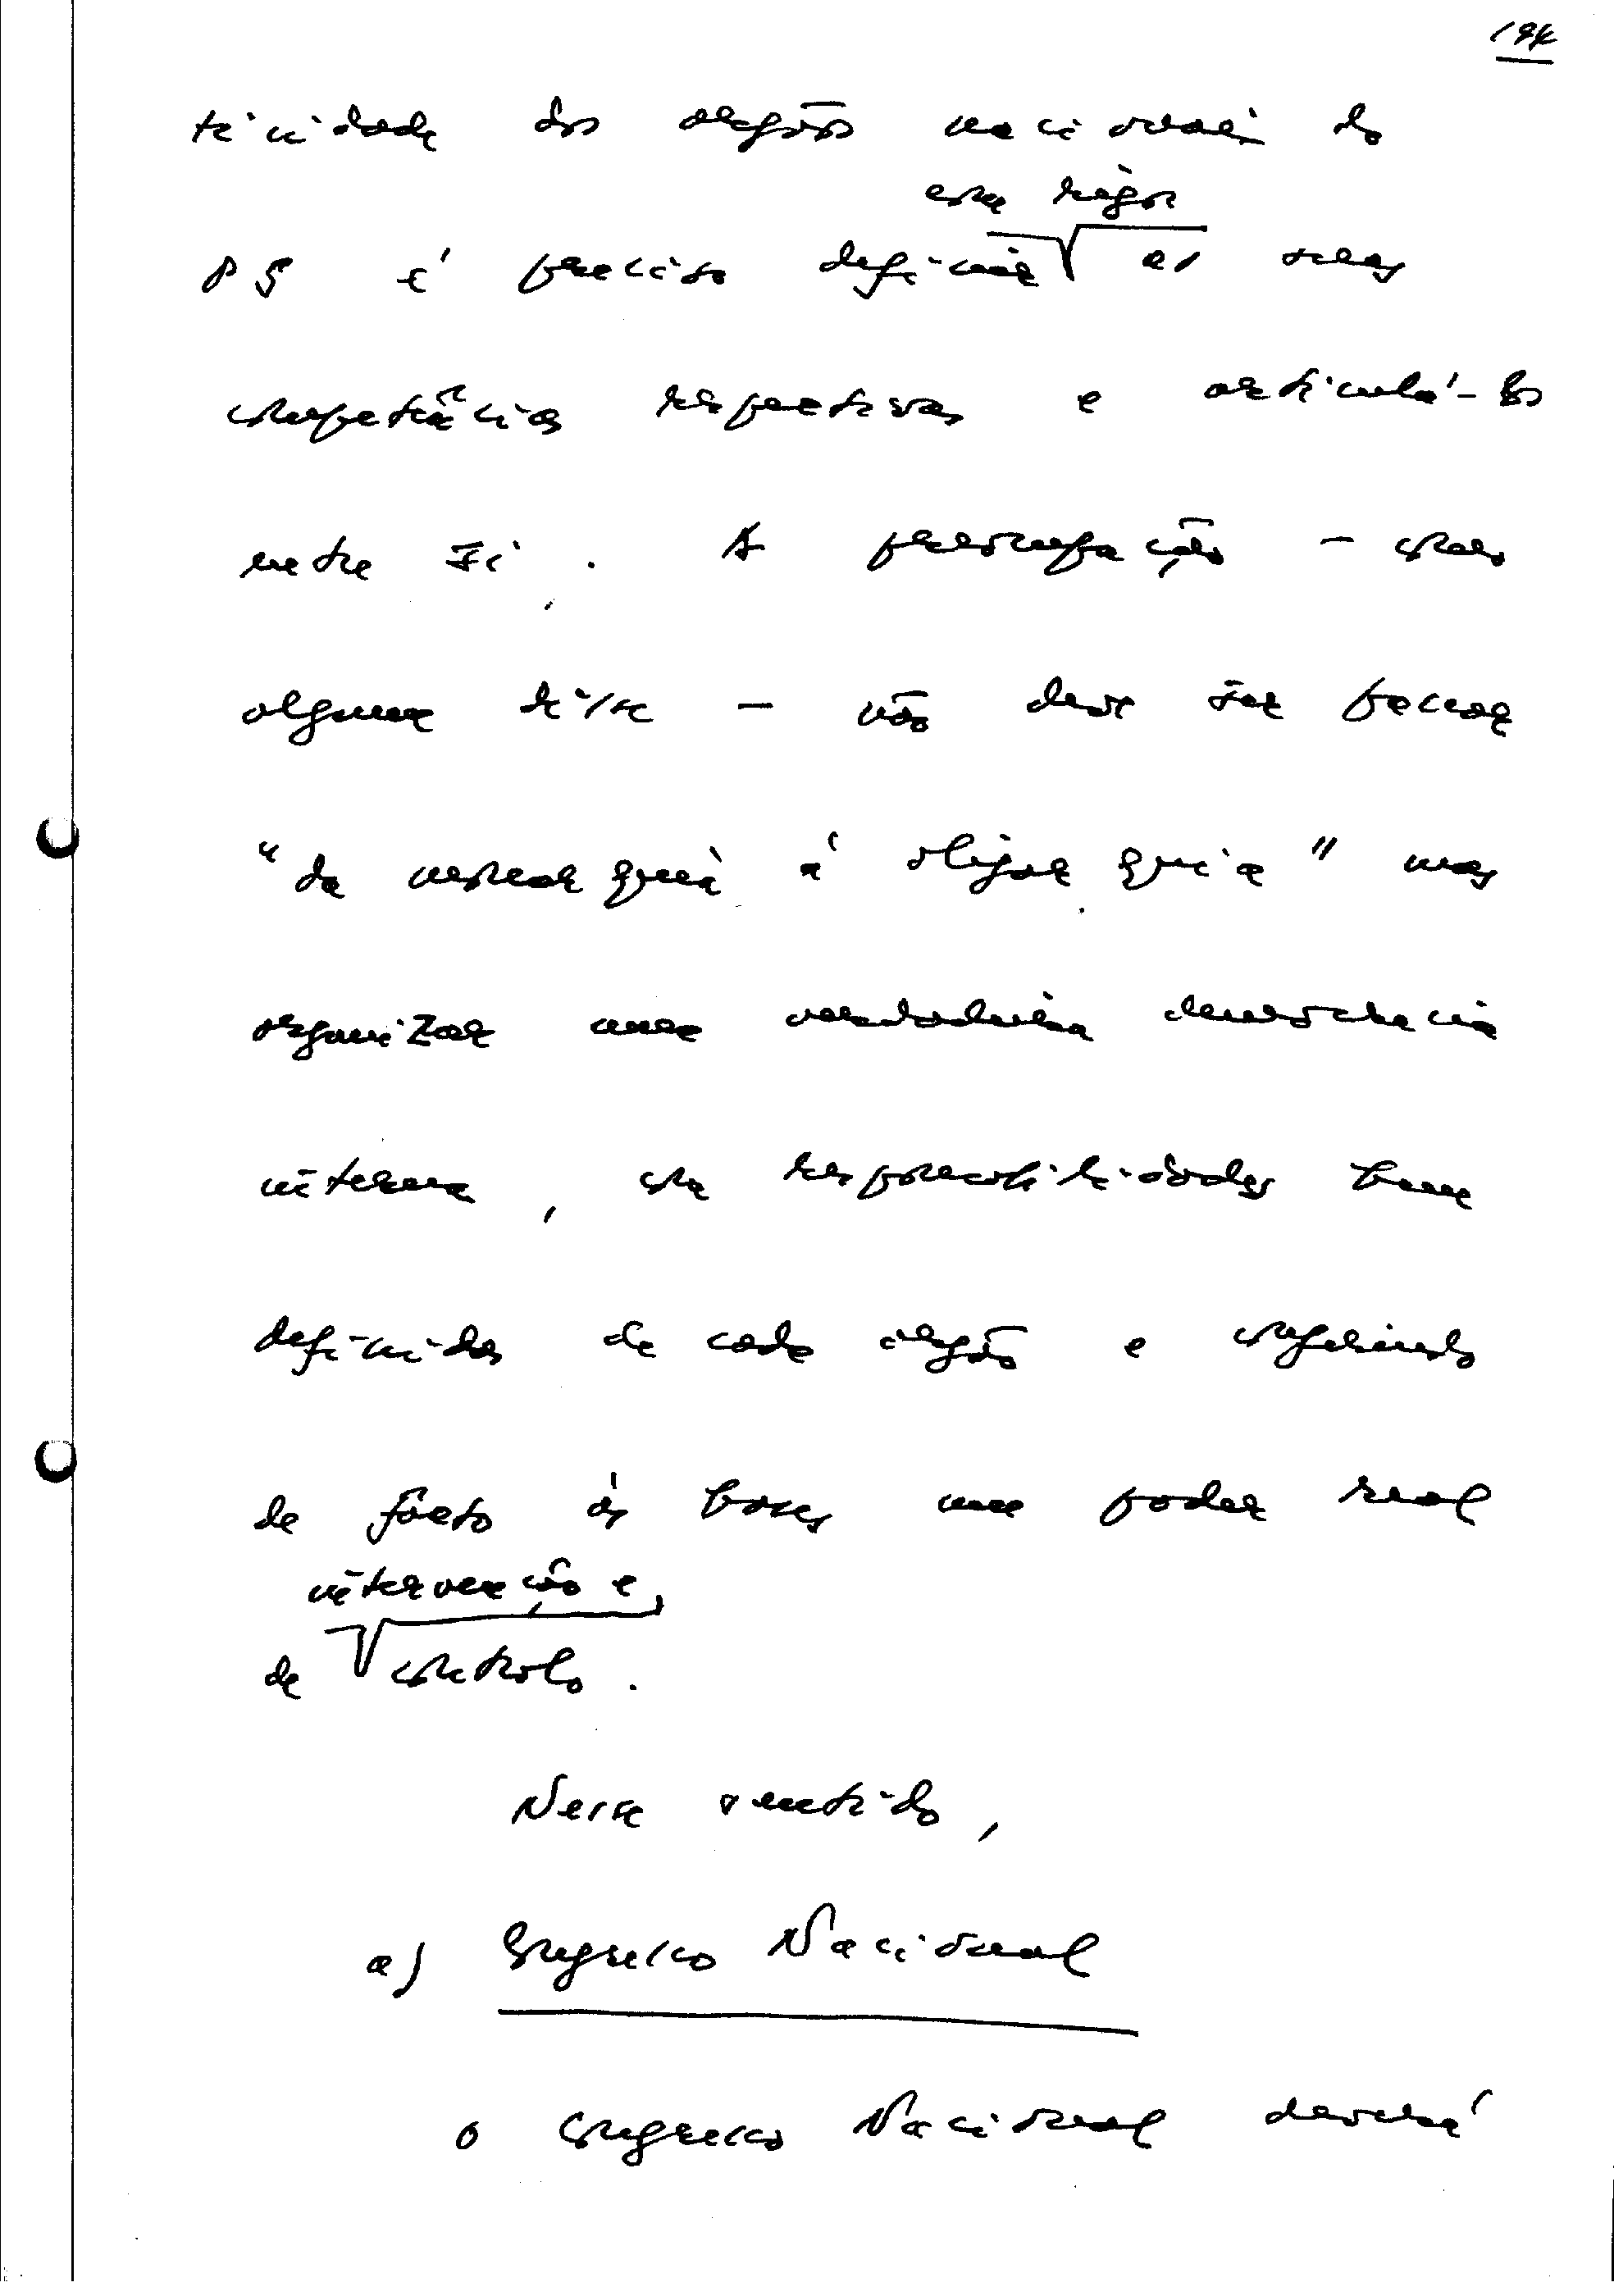 194
ticidade dos orgãos nacionais do
com rigor
PS é preciso definir as suas
competências respectivas e articulá-los
entre si. A preocupação - como
alguém disse - não deve ser passar
"da monarquia à oligarquia" mas
organizar uma verdadeira democracia
interna, com responsabilidades bem
definidas de cada orgão e conferindo
de facto às bases um poder real
intervenção e
de controlo.
Nesse sentido,
a) Congresso Nacional
O Congresso Nacional deverá